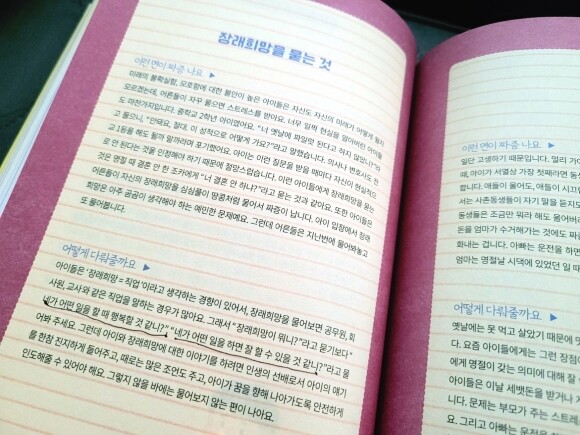 장래희망을 묻는 것
이런 면이 짜증 나요 ▶
미래의 불확실함, 모호함에 대한 불안이 높은 아이들은 자신도 자신의 미래가 어떻게 될지
모르겠는데, 어른들이 자꾸 물으면 스트레스를 받아요. 너무 일찍 현실을 알아버린 아이들
도 마찬가지입니다. 중학교 2학년 아이였어요. "너 옛날에 파일럿 된다고 하지 않았니?"라
고 물으니, "안돼요, 절대. 이 성적으로 어떻게 가요?"라고 말했습니다. 의사나 변호사도 전
교 1등을 해도 될까 말까라며 포기했어요. 아이는 이런 질문을 받을 때마다 자신이 현실적으
로 안 된다는 것을 인정해야 하기 때문에 절망스럽습니다. 이런 아이들에게 장래희망을 묻는
것은 명절 때 결혼 안 한 조카에게 "너 결혼 안 하냐?"라고 묻는 것과 같아요. 또한 아이들은
어른들이 자신의 장래희망을 심심풀이 땅콩처럼 물어서 짜증이 납니다. 아이 입장에서 장래
희망은 아주 곰곰이 생각해야 하는 예민한 문제예요. 그런데 어른들은 지난번에 물어봐놓고
또 물어봅니다.
어떻게 다뤄줄까요 ▶
아이들은 '장래희망 = 직업'이라고 생각하는 경향이 있어서, 장래희망을 물어보면 공무원, 회
사원, 교사와 같은 직업을 말하는 경우가 많아요. 그래서 "장래희망이 뭐니?"라고 묻기보다
"네가 어떤 일을 할 때 행복할 것 같니?" "네가 어떤 일을 하면 잘 할 수 있을 것 같니?"라고 물
어봐 주세요. 그런데 아이와 장래희망에 대한 이야기를 하려면 인생의 선배로서 아이의 얘기
를 한참 진지하게 들어주고, 때로는 많은 조언도 주고, 아이가 꿈을 향해 나아가도록 안전하게
인도해줄 수 있어야 해요. 그렇지 않을 바에는 물어보지 않는 편이 나아요.
이런 면이 짜증 나요 ▶
일단 고생하기 때문입니다. 멀리 가
때, 아이가 서열상 가장 첫째라면 동
합니다. 애들이 울어도, 애들이 시끄
서는 사촌동생들이 자기 밑을 듣지도
동생들은 조금만 뭐라 해도 울어버리
돈을 엄마가 수거해가는 것도
화내는 겁니다. 아빠는 운전을 하면
엄마는 명절날 시댁에 있었던 일 때
어떻게 다뤄줄까요 ▶
옛날에는 못 먹고 살았기 때문에 명
다. 요즘 아이들에게는 그런 장점이
에게 명절이 갖는 의미에 대해 잘
아이들은 이날 세뱃돈을 받거나
니다. 문제는 부모가 주는 스트레
요. 그리고 아빠는 운전을 하면